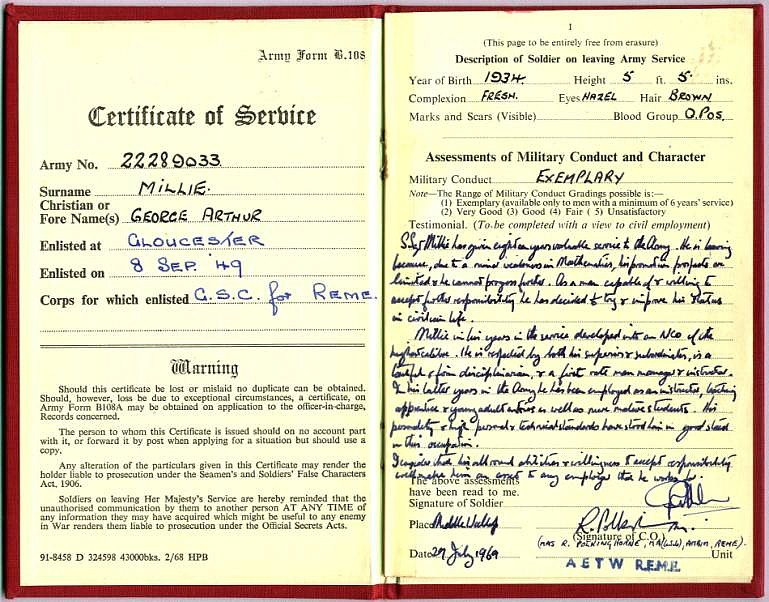 Army Form B.108
Certificate of Service
Army No. 22289033
Surname MILLIE.
Christian or
Fore Name(s) GEORGE ARTHUR
Enlisted at GLOUCESTER
Enlisted on 8 SEP. '49
Corps for which enlisted G.S.C. for REME.
Warning
Should this certificate be lost or mislaid no duplicate can be obtained.
Should, however, loss be due to exceptional circumstances, a certificate, on
Army Form B108A may be obtained on application to the officer-in-charge,
Records concerned.
The person to whom this Certificate is issued should on no account part
with it, or forward it by post when applying for a situation but should use a
copy.
Any alteration of the particulars given in this Certificate may render the
holder liable to prosecution under the Seamen's and Soldiers' False Characters
Act, 1906.
Soldiers on leaving Her Majesty's Service are hereby reminded that the
unauthorised communication by them to another person AT ANY TIME of
any information they may have acquired which might be useful to any enemy
in War renders them liable to prosecution under the Official Secrets Acts.
91-8458 D 324598 43000bks. 2/68 HPB
1
(This page to be entirely free from erasure)
Description of Soldier on leaving Army Service
Year of Birth 1934. Height 5 ft. 5. ins.
Complexion FRESH. Eyes HAZEL Hair BROWN
Marks and Scars (Visible) Blood Group O.POS.
Assessments of Military Conduct and Character
Military Conduct EXEMPLARY
Note—The Range of Military Conduct Gradings possible is:—
(1) Exemplary (available only to men with a minimum of 6 years' service)
(2) Very Good (3) Good (4) Fair (5) Unsatisfactory
Testimonial. (To be completed with a view to civil employment)
S.Sgt Millie has given eighteen years valuable service to the Army. He is leaving
because, due to a minor weakness in Mathematics, his promotion prospects are
limited & he cannot progress further. As a man capable of & willing to
accept further responsibility he has decided to try & improve his status
in civilian life.
Millie in his years in the service developed into an NCO of the
highest calibre. He is respected by both his superiors & subordinates, is a
tactful & firm disciplinarian, & a first rate man manager & instructor.
In his latter years in the Army he has been employed as an instructor, teaching
apprentice & young adult entries as well as more mature students. His
personality & high personal & technical standards have stood him in good stead
in this occupation.
I consider that his all round abilities & willingness to accept responsibility
will make him an asset to any employer that he works for.
The above assessments
have been read to me.
Signature of Soldier
Place Middle Wallop
(Signature of C.O.)
(MAJ R. POLKINGHORNE, REME).
Date 27 July 1969 Unit
AETW REME